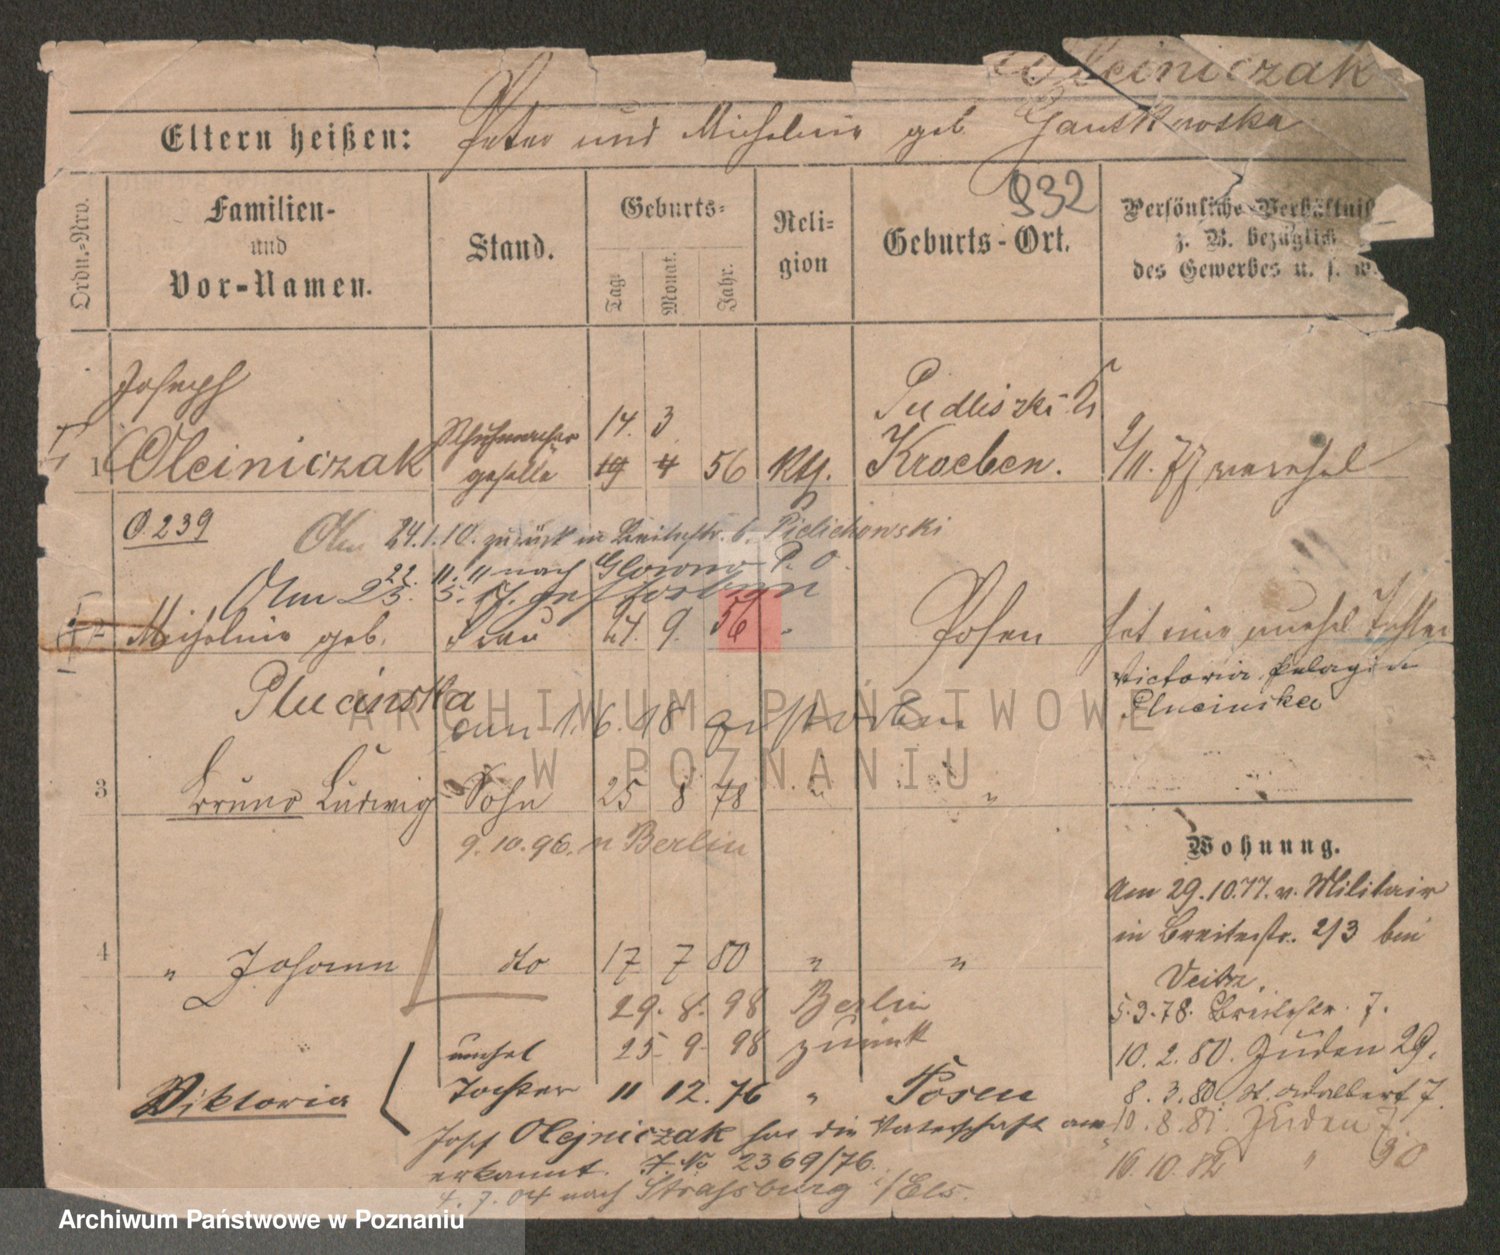 Olejniczak
Eltern heißen: Peter und Michaline geb. Gantkowska
932
Ordn.-Nro.
Familien- und Vor-Namen.
Stand.
Geburts-
Tag.
Monat.
Jahr.
Reli-gion
Geburts-Ort.
Persönliche Verhältniß
z. B. bezüglich
des Gewerbes u. s. w.
Joseph
1 Olejniczak
Schuhmacher
geselle
14. 3
19 4 56 kth.
Pudliszki Kr
Kroeben.
2/11. 77 verehel
O. 239
Am 24.1.10. zurück in Breitestr. 6. Pielichowski
22. 11. 11 nach Glowno P. O.
Am 25. 5. 17. gestorben
2 Michaline geb. Frau 27. 9. 56 " Posen
Plucinska
am 1. 6. 18 gestorben
hat eine unehel Tochter
Victoria Pelagia
Plucinska
3 Bruno Ludwig Sohn 25 8 78 " "
9. 10. 96. n Berlin
4 " Johann dto 17 7 80 " "
29. 8. 98 Berlin
25. 9. 98 zurück
Viktoria
unehel
Tochter 11 12. 76 " Posen
Josef Olejniczak hat die Vaterschaft an-
erkannt. J. No 2369/76.
4. 7. 04 nach Strassburg i/Els.
Wohnung.
Am 29.10.77. v. Militair
in Breitestr. 2/3 bei
Veith.
5. 3. 78. Breitestr. 7.
10. 2. 80. Juden 29.
8. 3. 80. St. Adalbert 7.
10. 8. 81. Juden 7.
16. 10. 82 " 30
ARCHIWUM PAŃSTWOWE
W POZNANIU
Archiwum Państwowe w Poznaniu